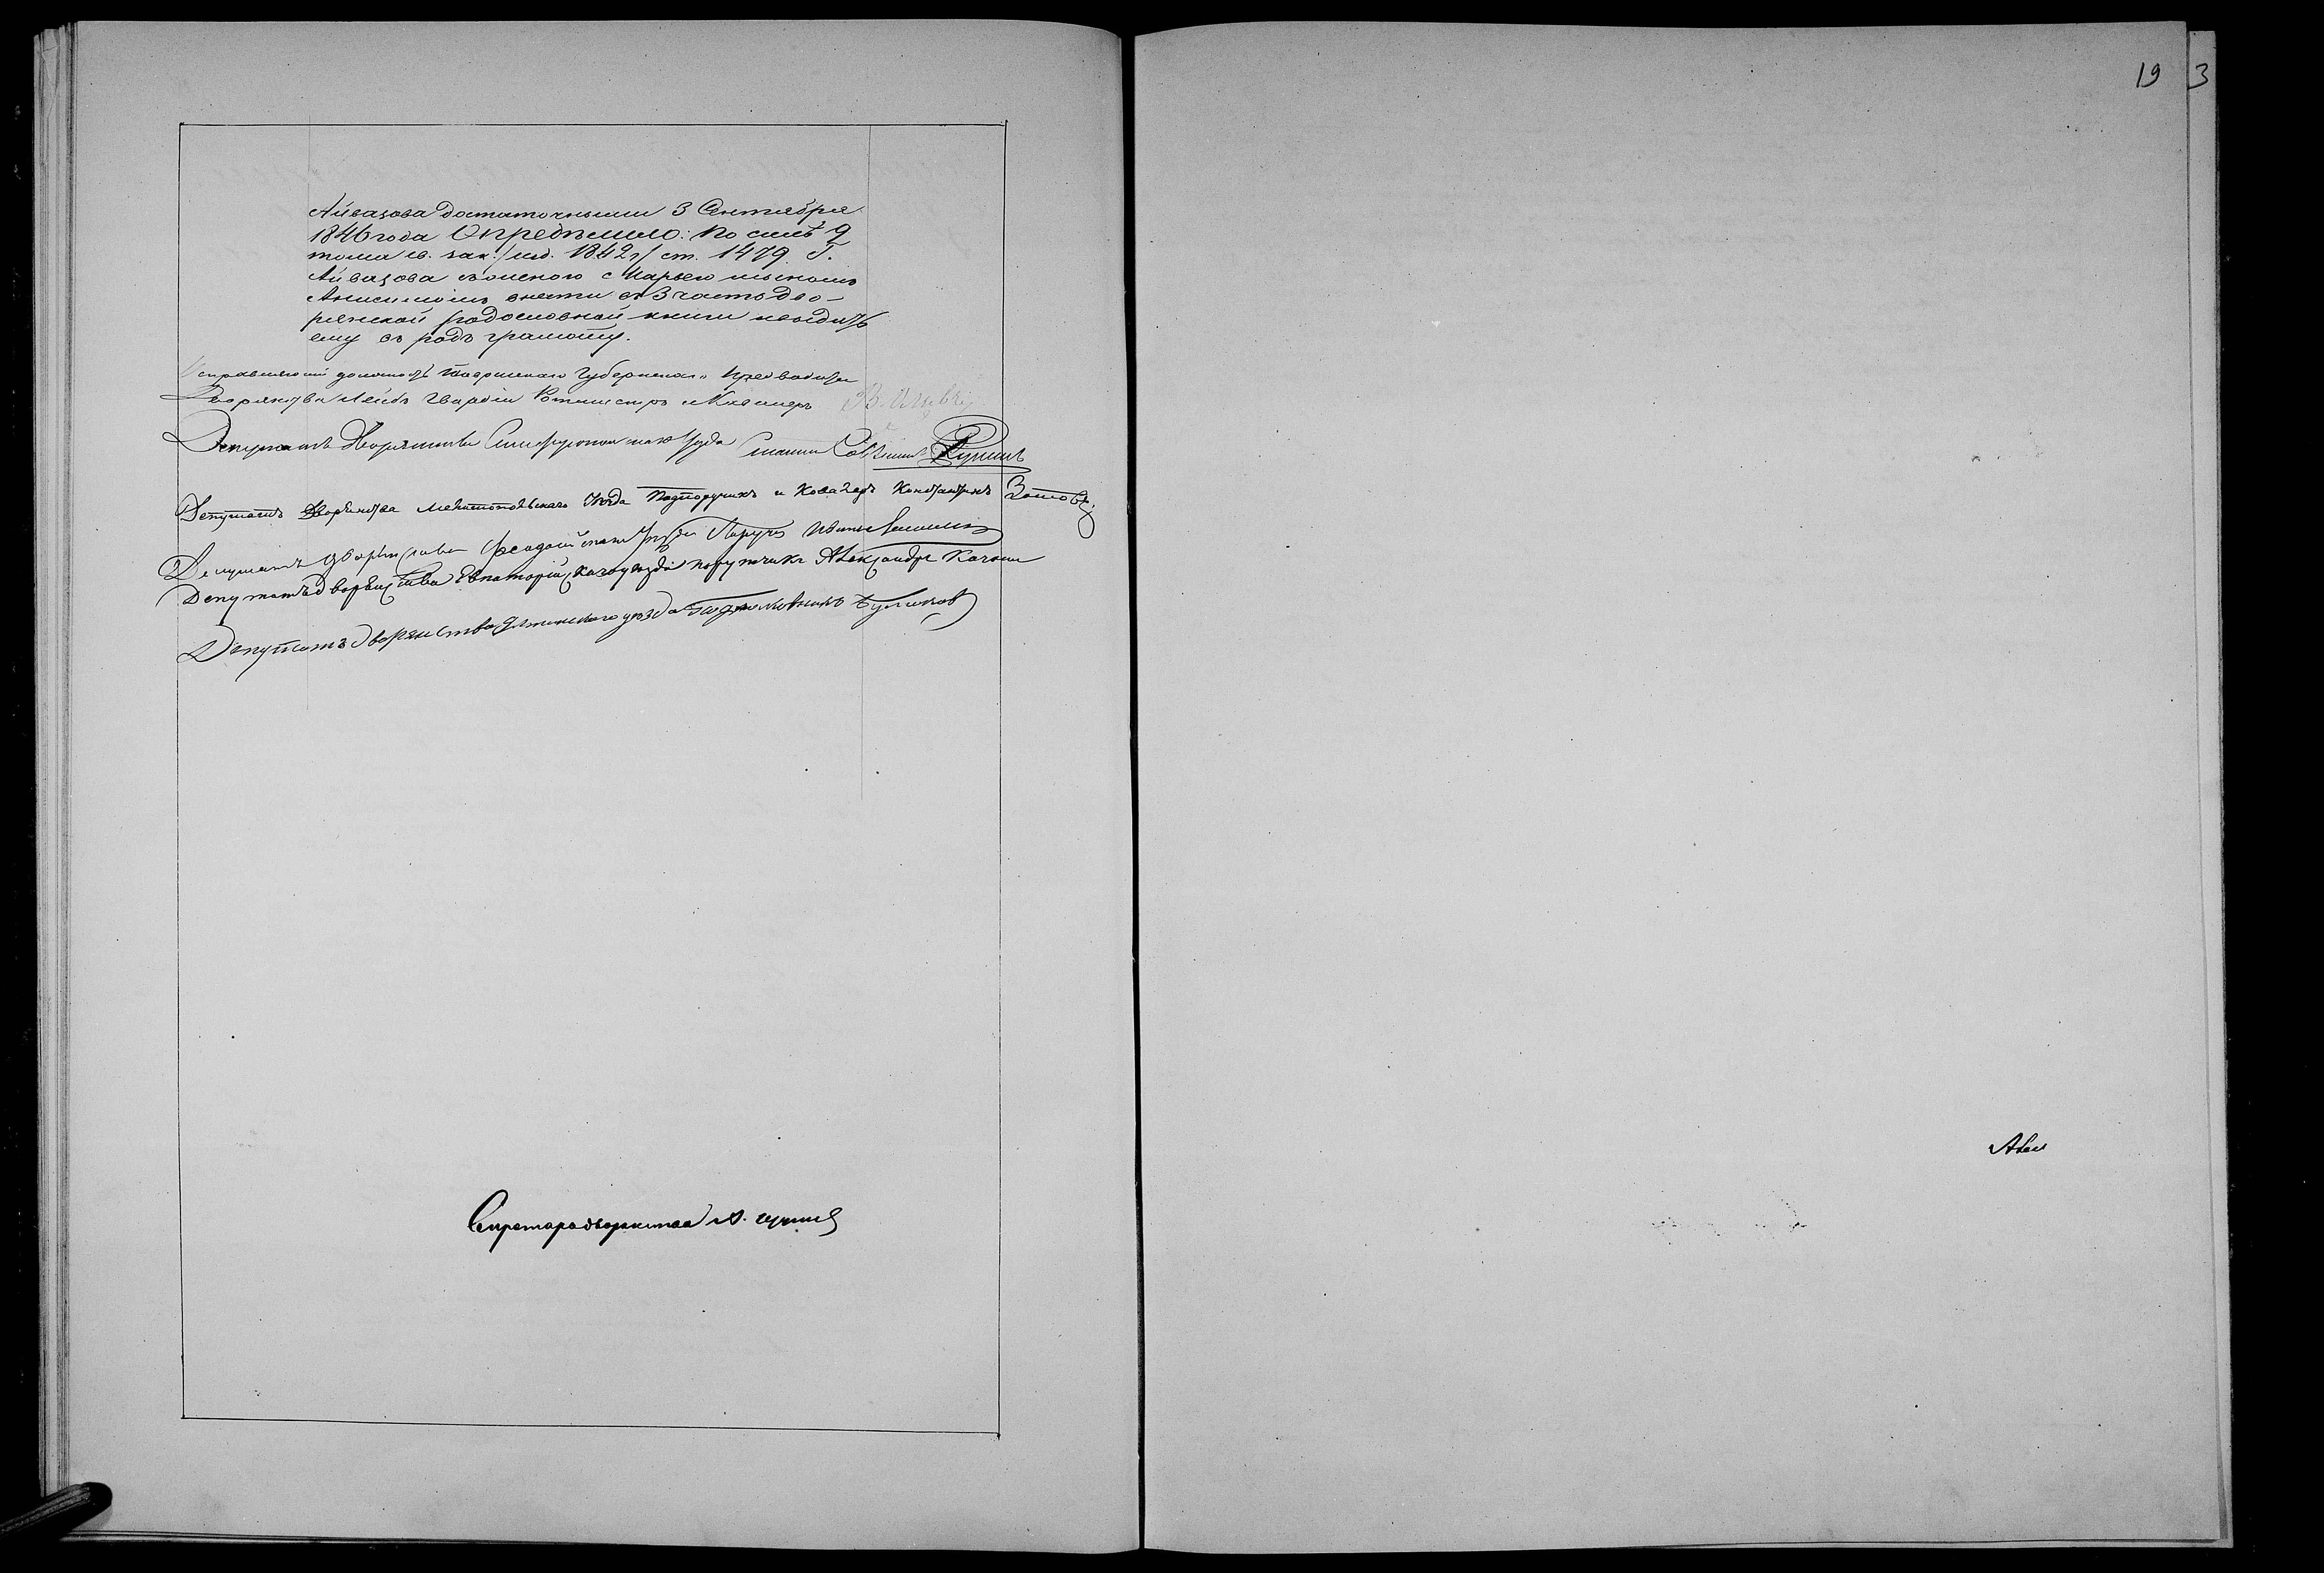 Айвазова достаточными 3 Сентября
1846 года Определило: По силѣ 9
тома св. зак. /изд. 1842 г/ ст. 1479. Г.
Айвазова съ женою с Марьею и сыномъ
Анисимомъ внести въ 3 часть дво-
рянской родословной книги и выдать
ему въ родъ грамоту.
Исправляющій должность Таврическаго Губернскаго Предводителя
Дворянства Лейбъ Гвардіи Ротмистръ и Кавалеръ
Депутатъ Дворянства Симферопольскаго Уѣзда Статскій Совѣтникъ
Депутатъ Дворянства Мелитопольскаго Уѣзда Подпоручикъ и Кавалеръ Константинъ
Депутатъ Дворянства Феодосійскаго Уѣзда Поручикъ Иванъ
Депутатъ дворянства Евпаторійскаго уѣзда поручикъ Александръ Качони
Депутатъ дворянства Ялтинскаго уѣзда подполковникъ
Секретарь дворянства
19 3